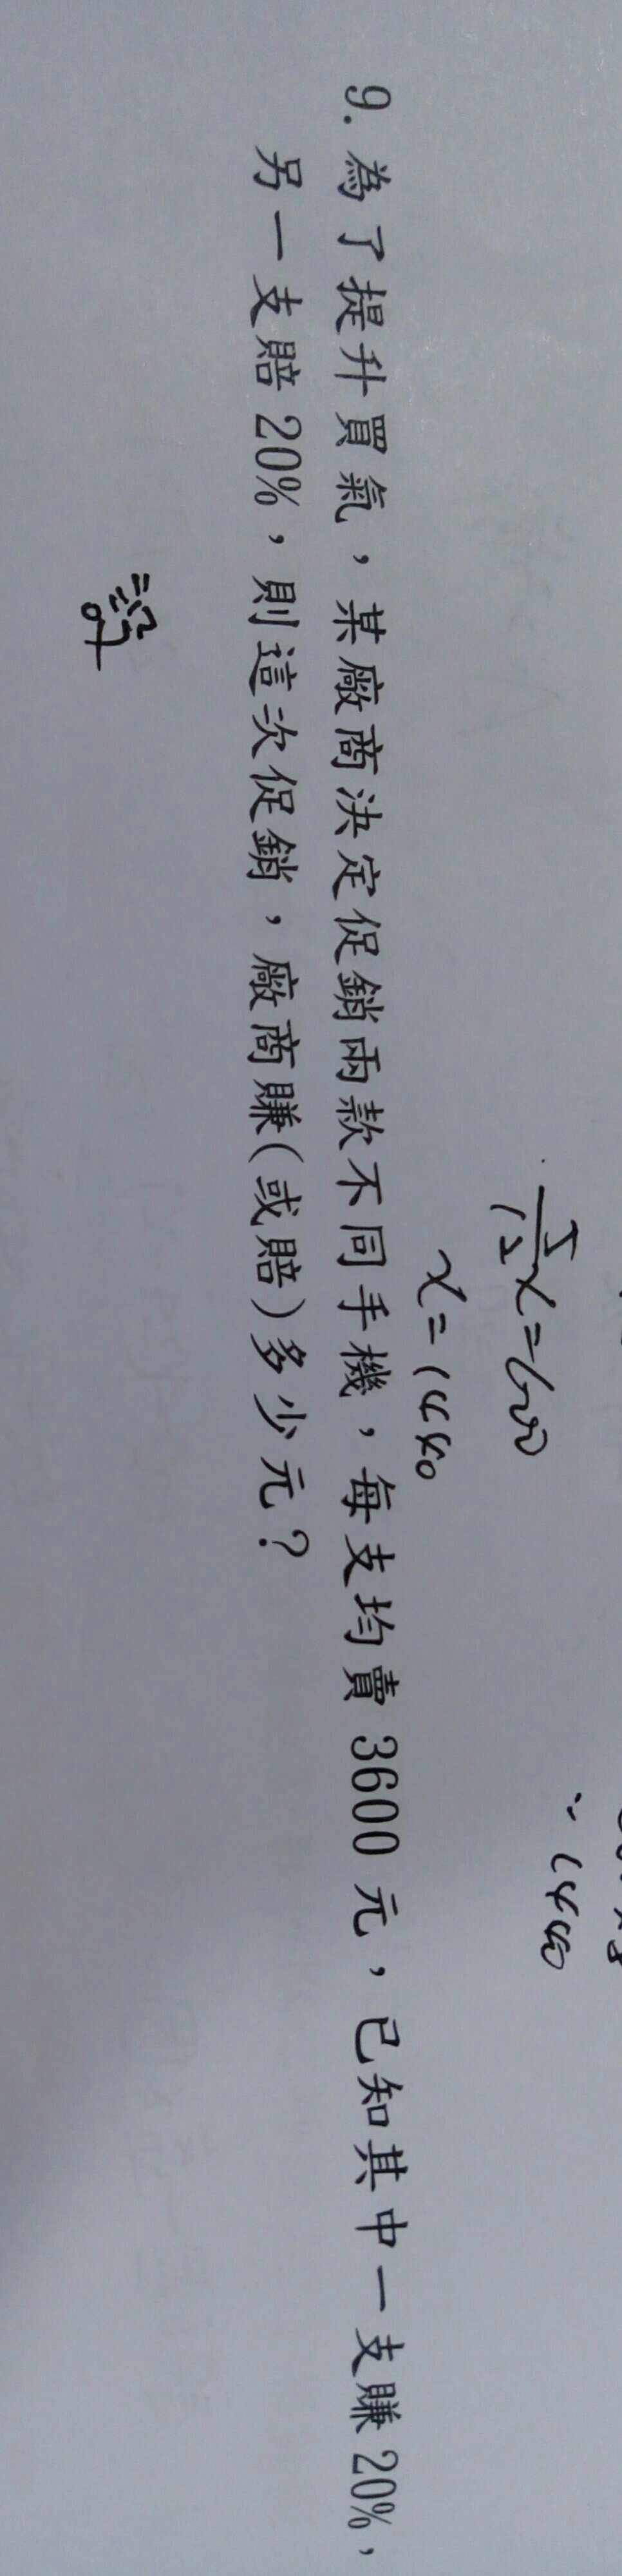 5/12 x = 600
x = 1440
= 1440
9. 為了提升買氣，某廠商決定促銷兩款不同手機，每支均賣 3600 元，已知其中一支賺 20%，
另一支賠 20%，則這次促銷，廠商賺(或賠)多少元？